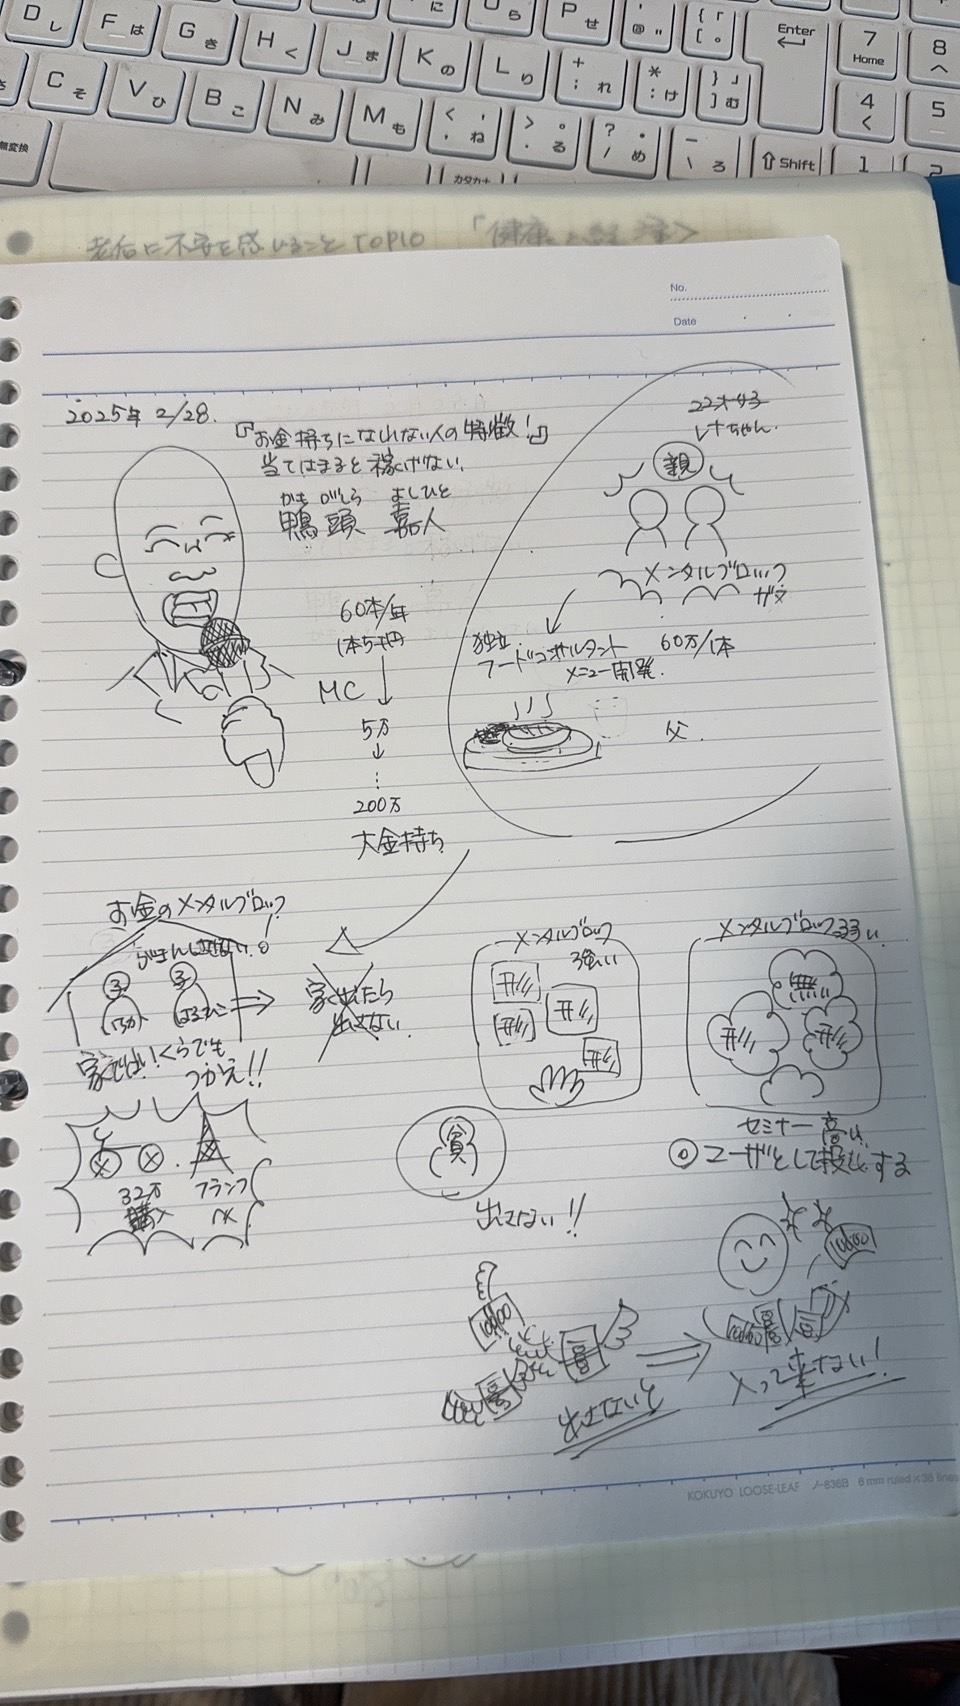 老後に不安を感じること TOP10
No.
Date
2025年 2/28.
『お金持ちになれない人の特徴!』
当てはまると稼げない.
かも がしら よしひと
鴨頭 嘉人
60本/年
1本5千円
MC
5万
200万
大金持ち
22才
レナちゃん.
親
メンタルブロック
独立
フードコンサルタント 60万/1本
メニュー開発.
父.
お金のメンタルブロック
がまんしない.
子 子
はるひこ
家ではいくらでも
つかえ!!
家出たら
出さない.
32万
購入
フランス
メンタルブロック
強い
メンタルブロック弱い
無
セミナー 高い
貧
出さない!!
出さないと
入って来ない!
10000
KOKUYO LOOSE-LEAF ノ-836B 6 mm ruled×36 lines
D し
F は
G き
H く
J ま
K の
L り
+ ; れ
* : け
} 」 ] む
Enter
7 Home
8
C そ
V ひ
B こ
N み
M も
< 、 , ね
> 。 . る
? ・ / め
\ ろ
Shift
4
5
1
2
無変換
カタカナ
P せ